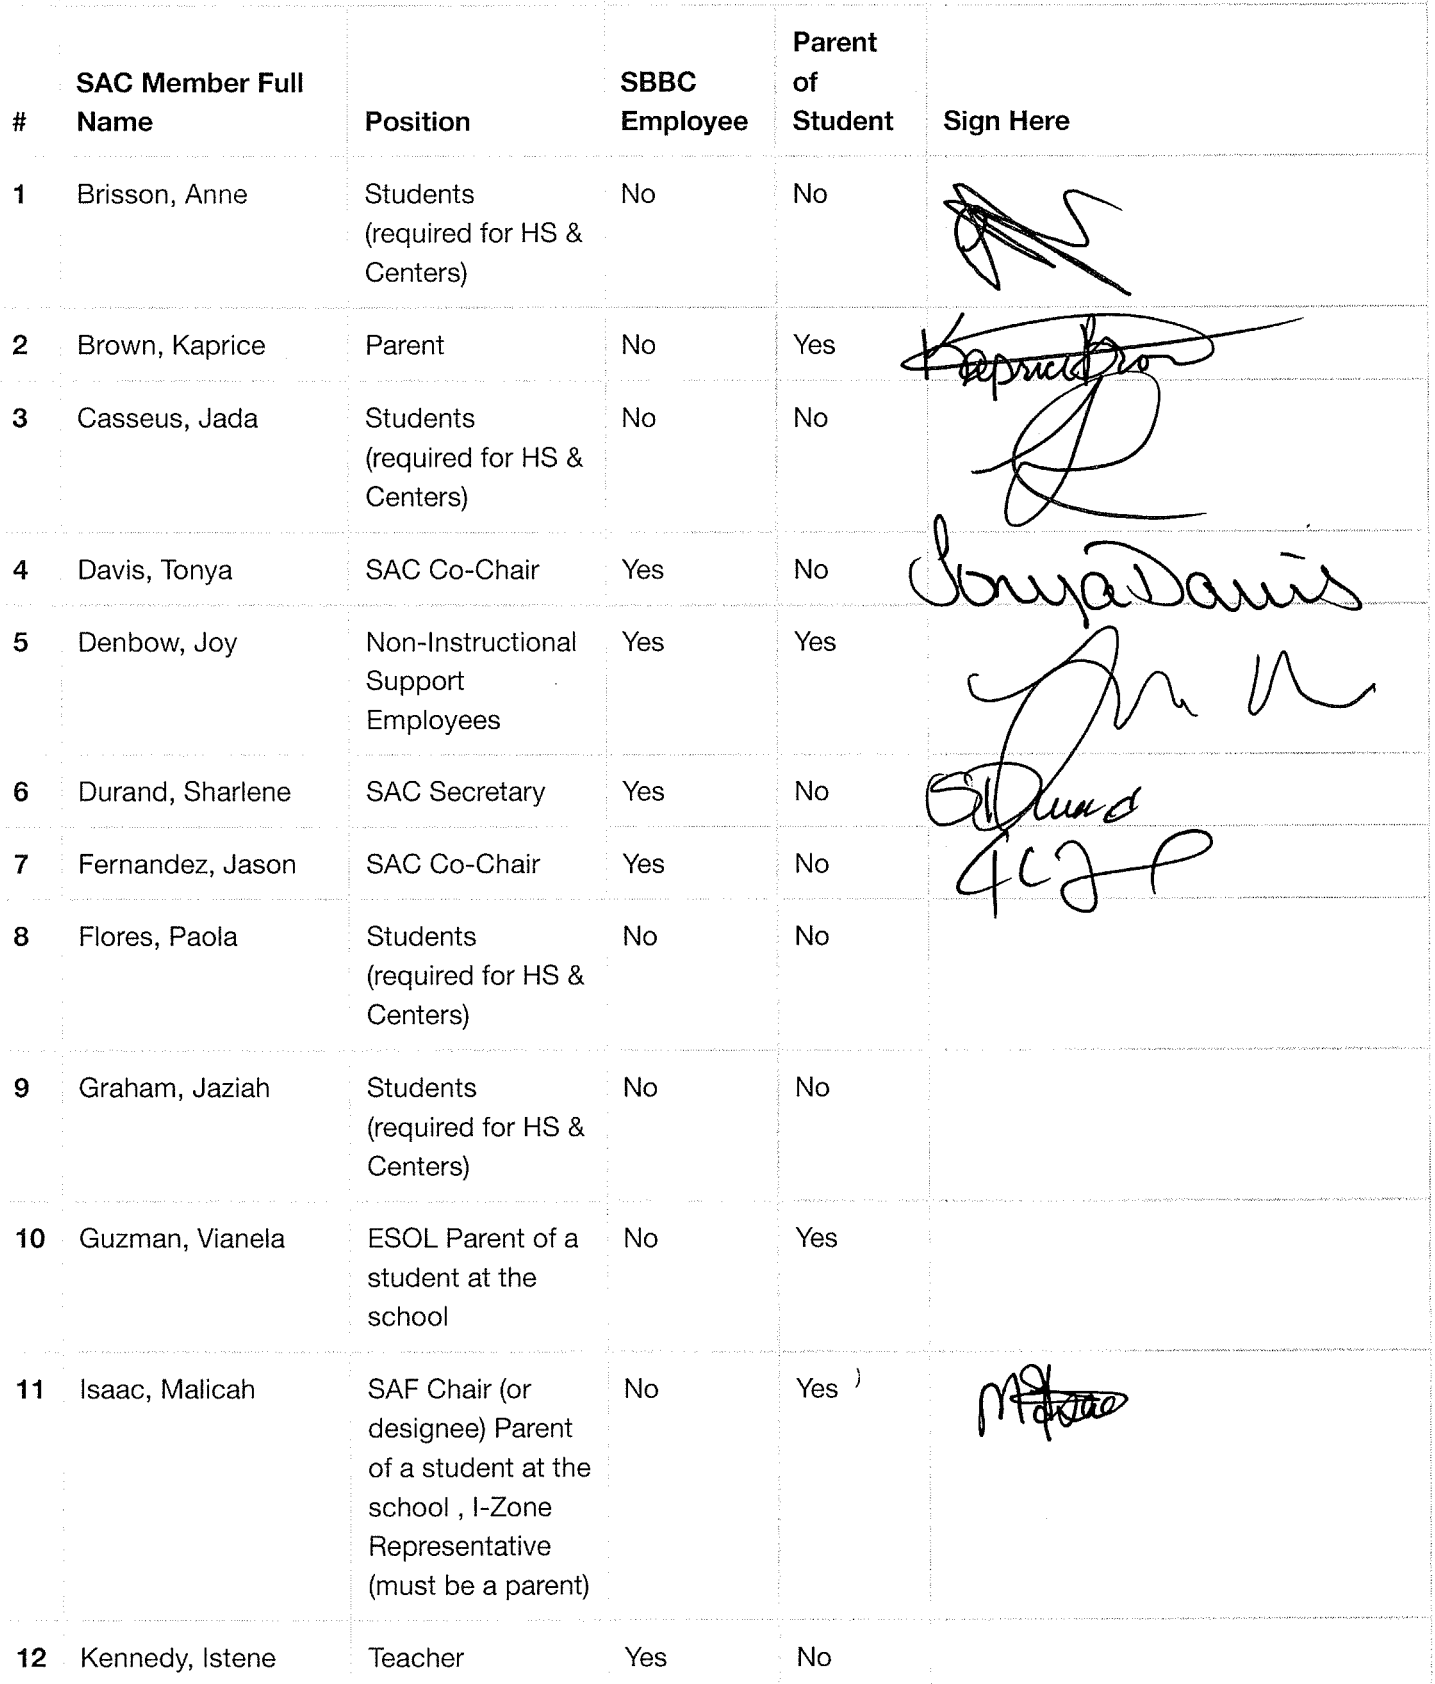 # SAC Member Full Name Position SBBC Employee Parent of Student Sign Here
1 Brisson, Anne Students No No
(required for HS &
Centers)
2 Brown, Kaprice Parent No Yes Kaprice Bro
3 Casseus, Jada Students No No
(required for HS &
Centers)
4 Davis, Tonya SAC Co-Chair Yes No Tonya Davis
5 Denbow, Joy Non-Instructional Yes Yes
Support
Employees
6 Durand, Sharlene SAC Secretary Yes No SDurand
7 Fernandez, Jason SAC Co-Chair Yes No
8 Flores, Paola Students No No
(required for HS &
Centers)
9 Graham, Jaziah Students No No
(required for HS &
Centers)
10 Guzman, Vianela ESOL Parent of a No Yes
student at the
school
11 Isaac, Malicah SAF Chair (or No Yes
designee) Parent
of a student at the
school , I-Zone
Representative
(must be a parent)
12 Kennedy, Istene Teacher Yes No